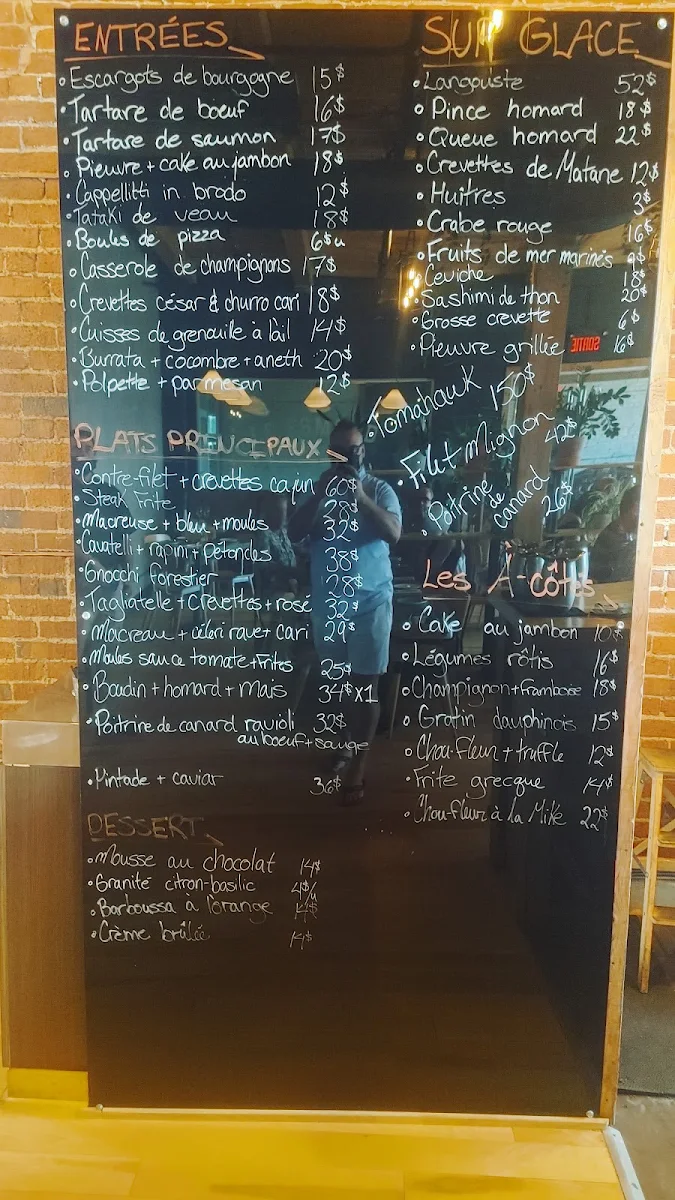 ENTRÉES
• Escargots de bourgogne 15$
• Tartare de boeuf 16$
• Tartare de saumon 17$
• Pieuvre + cake au jambon 18$
• Cappellitti in brodo 12$
• Tataki de veau 18$
• Boules de pizza 6$u
• Casserole de champignons 17$
• Crevettes césar & churro cari 18$
• Cuisses de grenouille à l'ail 14$
• Burrata + cocombre + aneth 20$
• Polpette + parmesan 12$
PLATS PRINCIPAUX
• Contre-filet + crevettes cajun 60$
• Steak Frite 28$
• Macreuse + bleu + moules 32$
• Cavatelli + rapini + pétoncles 38$
• Gnocchi forestier 28$
• Tagliatelle + crevettes + rosé 32$
• Macreau + céleri rave + cari 29$
• Moules sauce tomate + Frites 25$
• Boudin + homard + Mais 34$ x1
• Poitrine de canard ravioli 32$
au boeuf + sauge
• Pintade + caviar 36$
DESSERT
• Mousse au chocolat 14$
• Granité citron-basilic 4$/u
• Barboussa à l'orange 14$
• Crème brûlée 14$
SUR GLACE
• Langouste 52$
• Pince homard 18$
• Queue homard 22$
• Crevettes de Matane 12$
• Huîtres 3$
• Crabe rouge 16$
• Fruits de mer marinés 9$
• Ceviche 18$
• Sashimi de thon 20$
• Grosse crevette 6$
• Pieuvre grillée 16$
SORTIE
• Tomahawk 150$
• Filet Mignon 42$
• Poitrine de canard 26$
Les À-Côtés
• Cake au jambon 10$
• Légumes rôtis 16$
• Champignon + Framboise 18$
• Gratin dauphinois 15$
• Chou-fleur + truffle 12$
• Frite grecque 14$
• Chou-fleur à la Mike 22$